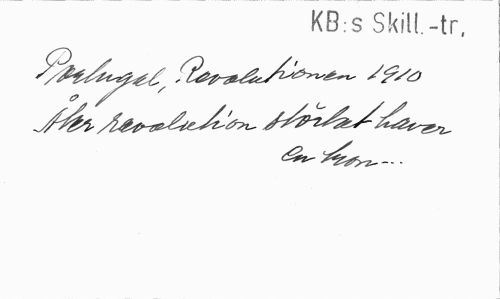 KB:s Skill.-tr.
Portugal, Revolutionen 1910
Åter revolution störtat haver
en tron---